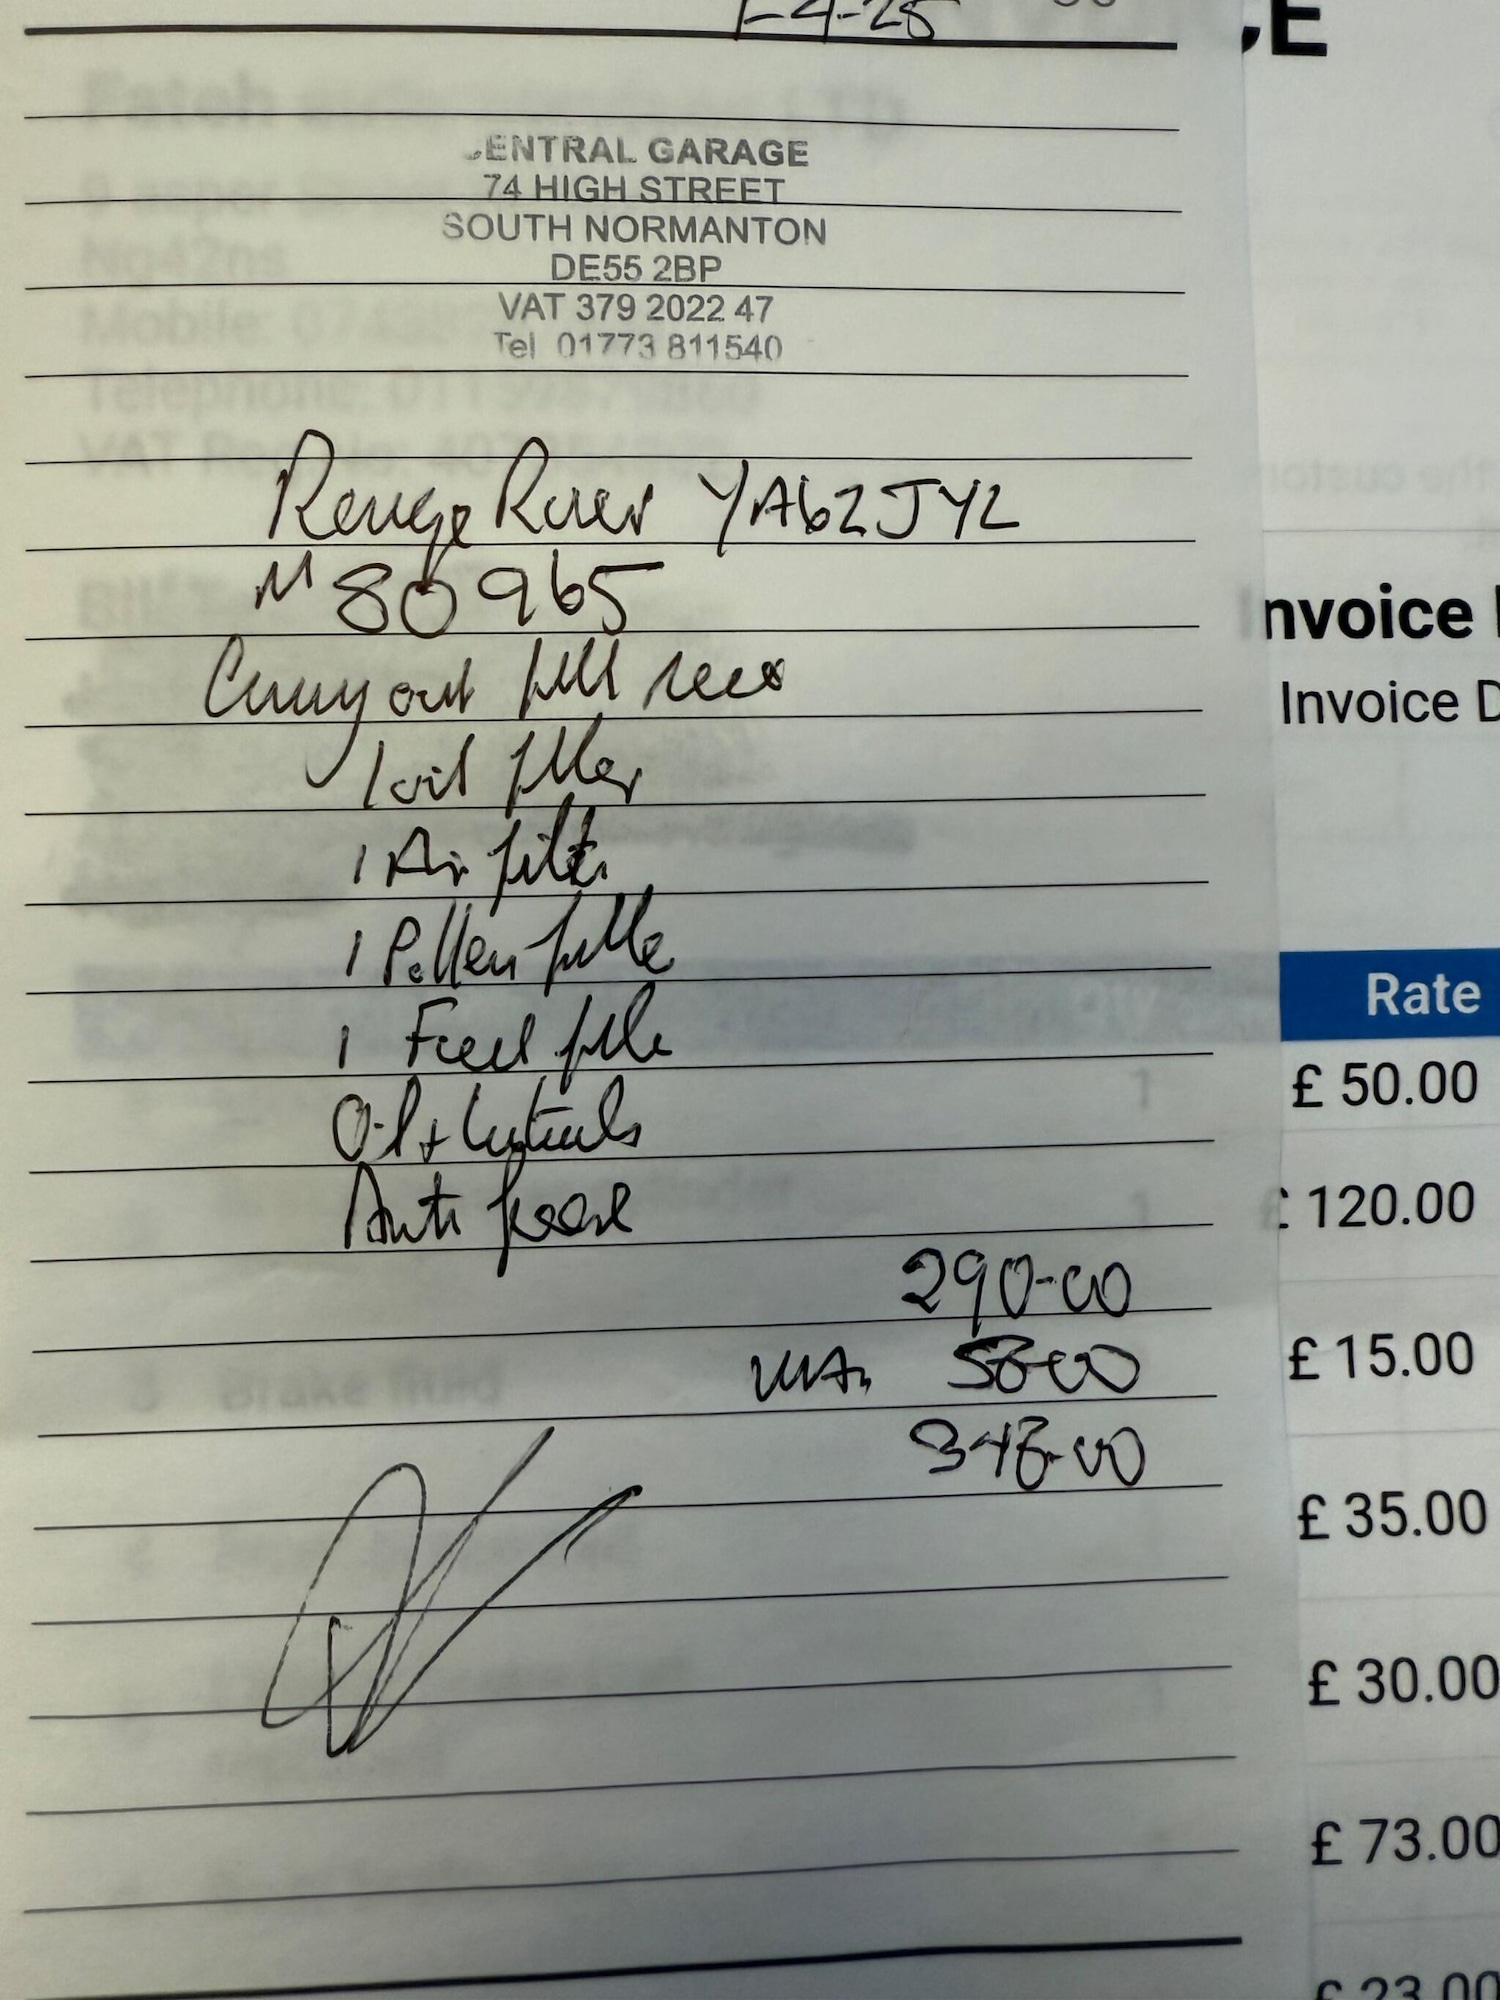 1-4-25
CE
ENTRAL GARAGE
74 HIGH STREET
SOUTH NORMANTON
DE55 2BP
VAT 379 2022 47
Tel 01773 811540
Range Rover YA62JYL
M 80965
Carry out full
1 oil filter
1 Air filter
1 Pollen filter
1 Fuel filter
Oil +
Anti freeze
290-00
VAT 58-00
348-00
Brake fluid
nvoice
Invoice D
Rate
£ 50.00
£ 120.00
£ 15.00
£ 35.00
£ 30.00
£ 73.00
£ 23.00